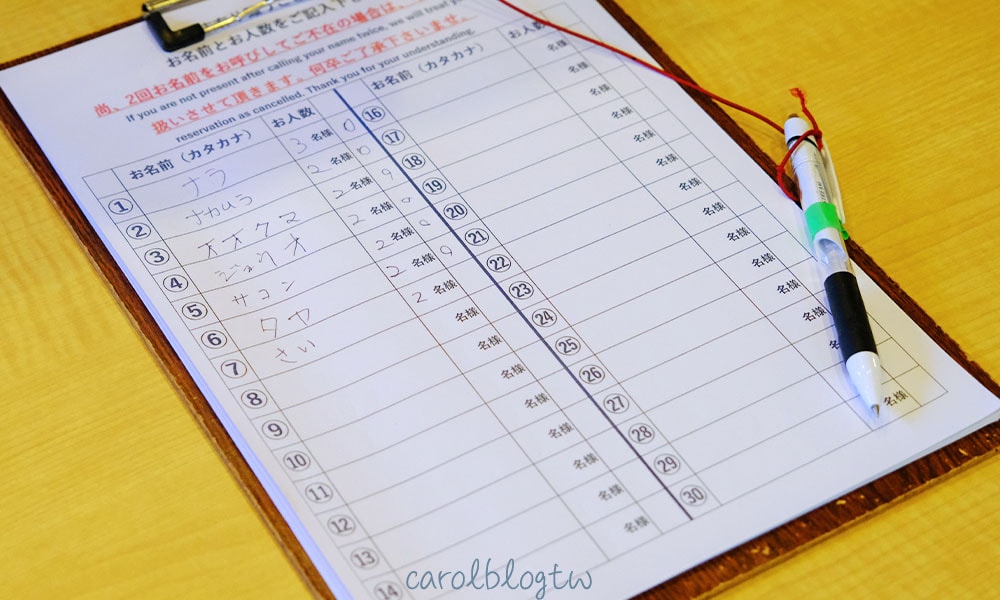 お名前とお人数をご記入下さ
尚、2回お名前をお呼びしてご不在の場合は、
If you are not present after calling your name twice, we will treat
扱いさせて頂きます。何卒ご了承下さいませ。
reservation as cancelled. Thank you for your understanding.
お名前（カタカナ） お人数
① ナラ 3名様
② ナカムラ 2名様
③ 2名様
④ ジュリオ 2名様
⑤ サヨン 2名様
⑥ タヤ 2名様
⑦ さい 2名様
⑧ 名様
⑨ 名様
⑩ 名様
⑪ 名様
⑫ 名様
⑬ 名様
⑭ 名様
お名前（カタカナ） お人数
⑯ 名様
⑰ 名様
⑱ 名様
⑲ 名様
⑳ 名様
㉑ 名様
㉒ 名様
㉓ 名様
㉔ 名様
㉕
㉖
㉗
㉘
㉙
㉚ 名様
carolblogtw